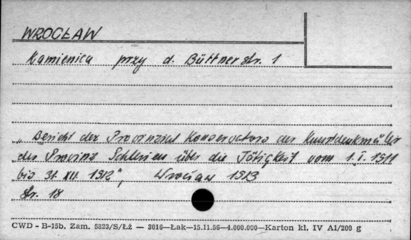 WROCŁAW
Kamienica przy d. Büttnerstr. 1
„Bericht des Provinzial Konservators der Kunstdenkmäler
der Provinz Schlesien über die Tätigkeit vom 1.I.1911
bis 31 XII. 1912", Wrocław 1913
Str. 18
CWD - B-15b. Zam. 5823/S/Łż — 3016—Łak—15.11.56—4.000.000—Karton kl. IV A1/200 g